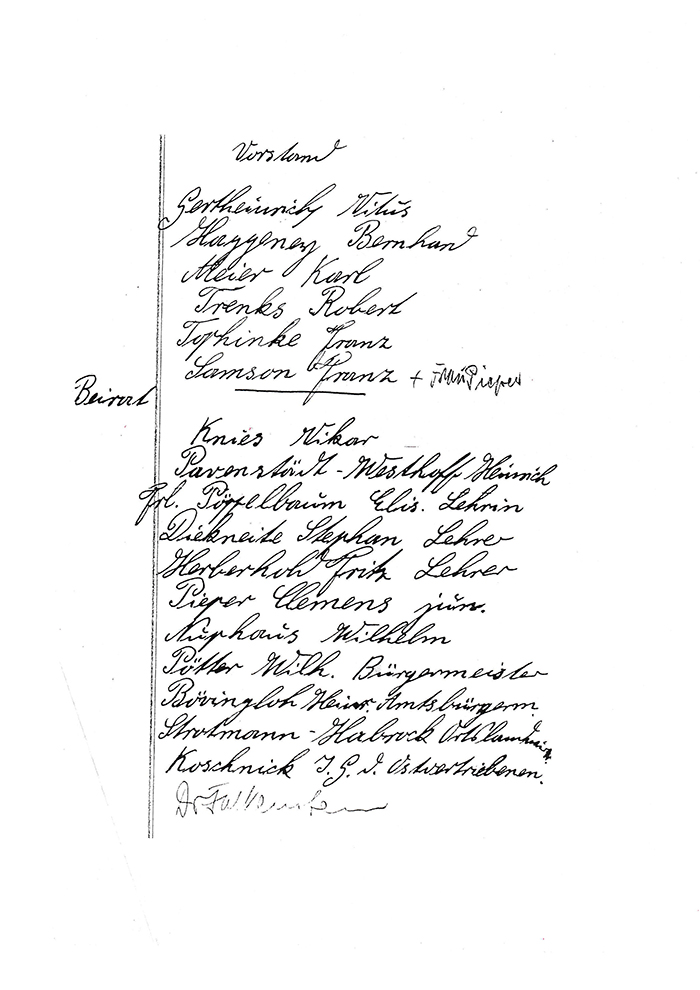 Vorstand
Gertheinrich Vitus
Haggeney Bernhard
Meier Karl
Trenks Robert
Tophinke Franz
Samson Franz + Frau Pieper
Beirat
Knies Vikar
Pavenstädt-Westhoff Heinrich
Frl. Pöppelbaum Elis. Lehrin
Diekneite Stephan Lehrer
Herberhold Fritz Lehrer
Pieper Clemens jun.
Nuphaus Wilhelm
Pötter Wilh. Bürgermeister
Bövingloh Heinr. Amtsbürgerm.
Strotmann-Habrock
Koschnick I.G.d. Ostvertriebenen.
Dr